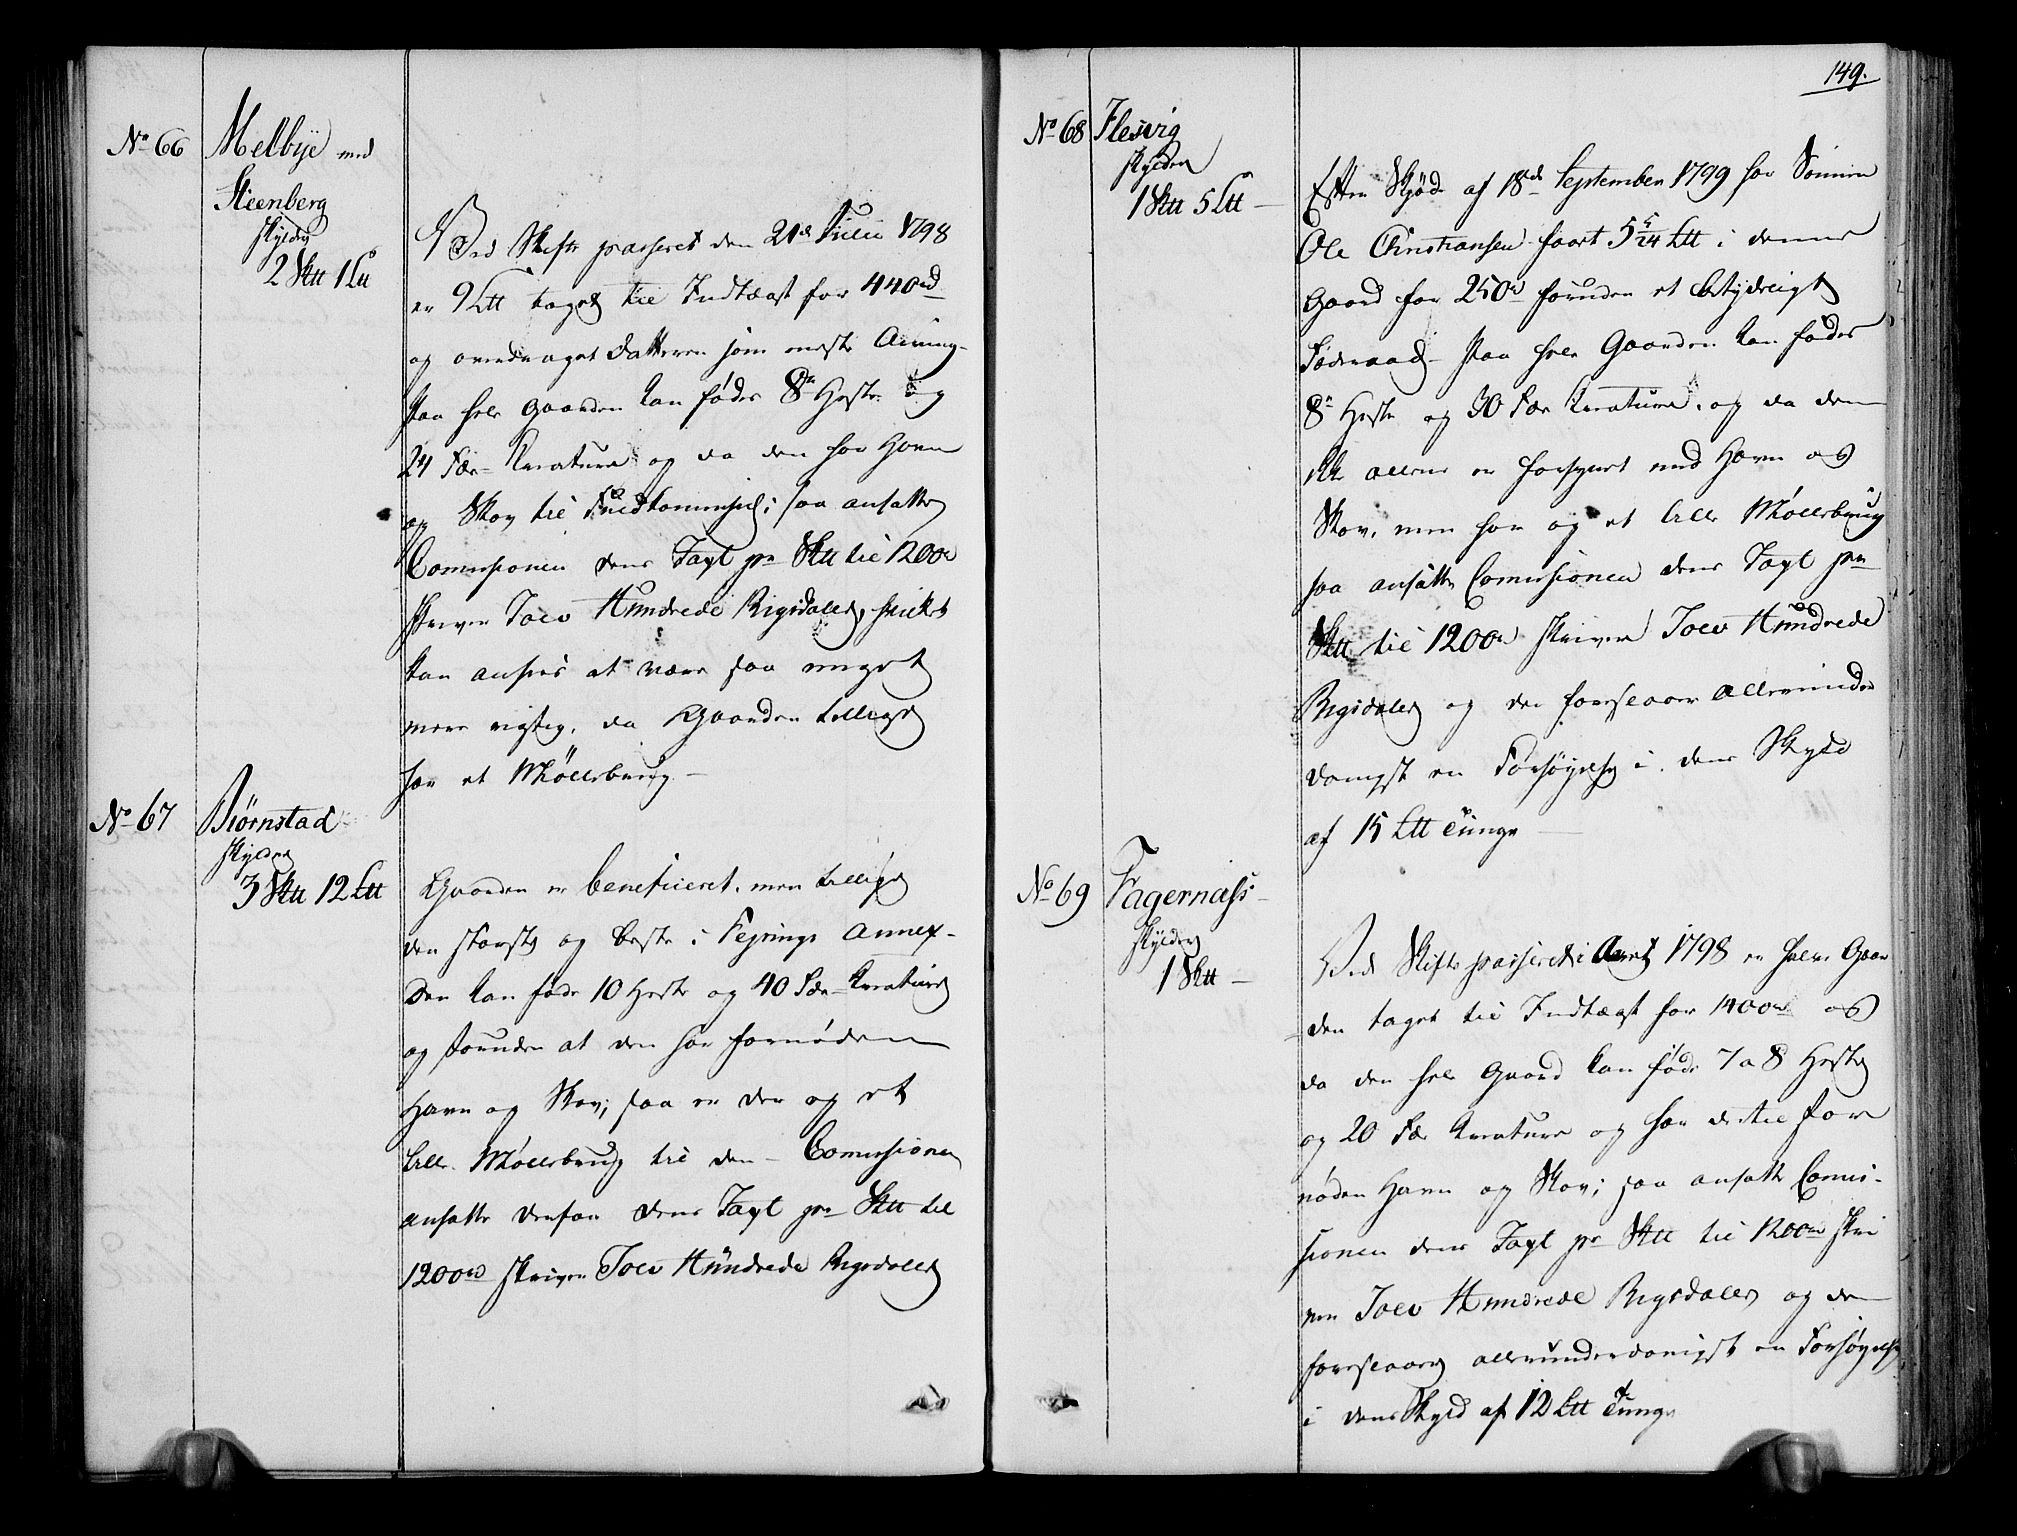 No 66
Melbÿe med
Steenberg
skylder
2 Sktt 1 Ltt
Ved Skifte passeret den 21de Julii 1798
er 9 Ltt taget til Indtægt for 440rd
og overdraget Datteren som eneste Arving-
Paa hele Gaarden kan fødes 8te Heste og
24 Fæ-Kreature og da den har Havn
og Skov til Fuldkommenhed; saa ansatte
Comissionen dens Taxt pr Sktt til 1200rd
skriver Tolv Hundrede Rigsdaler, hvilket
kan ansees at være saa meget
mere rigtig, da Gaarden tilligे
har et Møllebrug-
No 67
Biørnstad
skylder
3 Sktt 12 Ltt
Gaarden er beneficeret, men tillige
den største og beste i Fejrings Annex-
Den kan føde 10 Heste og 40 Fæ-Kreature
og foruden at den har fornøden
Havn og Skov; saa er der og et
lille Møllebrug til den- Comissionen
ansatte derfor dens Taxt pr Sktt til
1200rd skriver Tolv Hundrede Rigsdaler
149.
No 68
Flesvig
skylder
1 Sktt 5 Ltt-
Efter Skjøde af 18de September 1799 har Sønnen
Ole Christiansen faaet 5 5/24 Ltt i denne
Gaard for 250rd foruden et betydeligt
Føderaad- Paa hele Gaarden kan fødes
8te Heste og 30 Fæ Kreature, og da den
ikke allene er forsynet med Havn og
Skov, men har og et lille Møllebrug
saa ansatte Comissionen dens Taxt pr
Sktt til 1200rd skriver Tolv Hundrede
Rigsdaler og der foreslaaes allerunder
danigst en Forhøyelse i dens Skyld
af 15 Ltt Tunge-
No 69
Fagernæss-
skylder
1 Sktt-
Ved Skifte passeret i Aaret 1798 er halve Gaar
den taget til Indtægt for 1400rd og
da den hele Gaard kan føde 7 a 8 Heste
og 20 Fæ Kreature og har dertil for
nøden Havn og Skov; saa ansatte Comis-
sionen dens Taxt pr Sktt til 1200rd skri
ver Tolv Hundrede Rigsdaler og der
foreslaaes allerunderdanigst en Forhøyelse
i dens Skyld af 12 Ltt Tunge